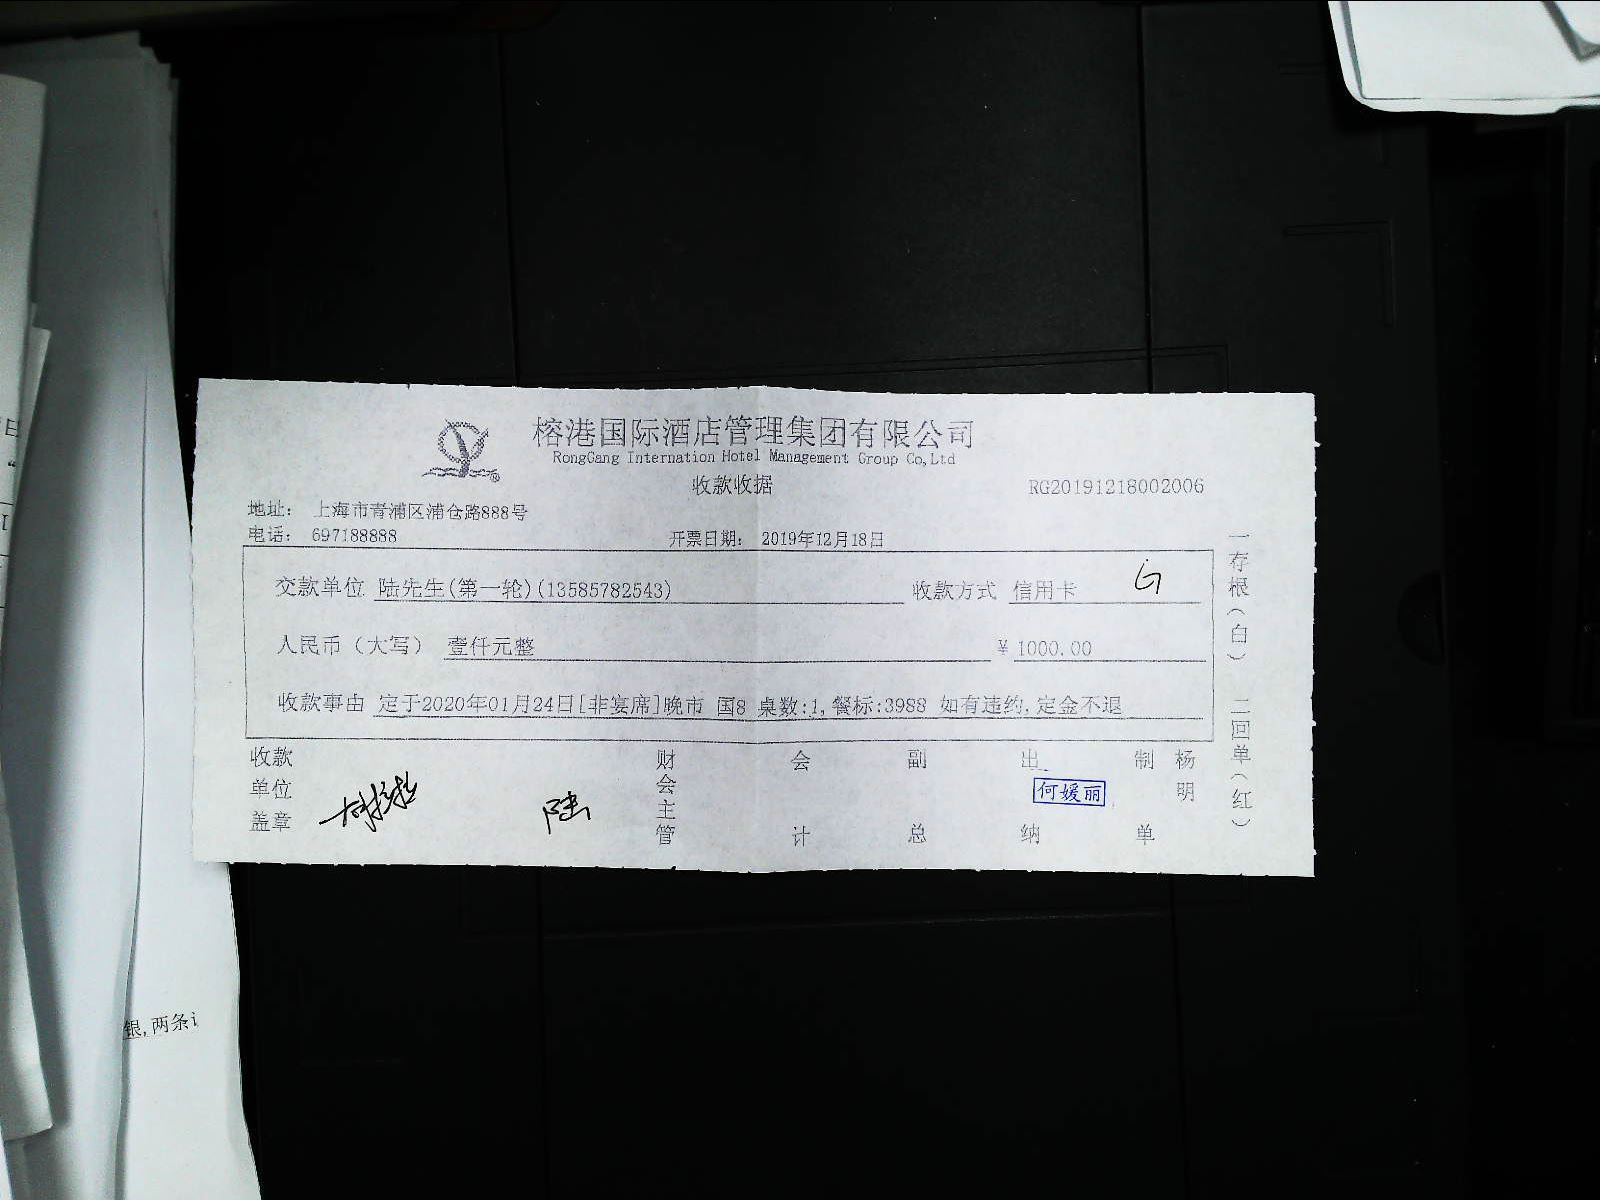 榕港国际酒店管理集团有限公司
RongGang Internation Hotel Management Group Co,Ltd
收款收据
RG20191218002006
地址： 上海市青浦区浦仓路888号
电话： 697188888
开票日期： 2019年12月18日
交款单位 陆先生(第一轮)(13585782543) 收款方式 信用卡
人民币（大写） 壹仟元整 ￥ 1000.00
收款事由 定于2020年01月24日[非宴席]晚市 国8 桌数:1,餐标:3988 如有违约,定金不退
收款单位盖章
陆
财会主管
会计
副总
出纳
何媛丽
制单
杨明
一存根（白） 二回单（红）
银,两条